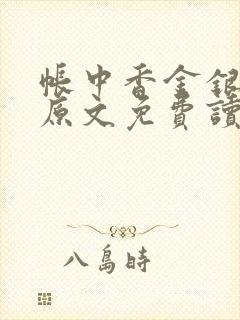 帳中香金銀
原文免費讀
八島時